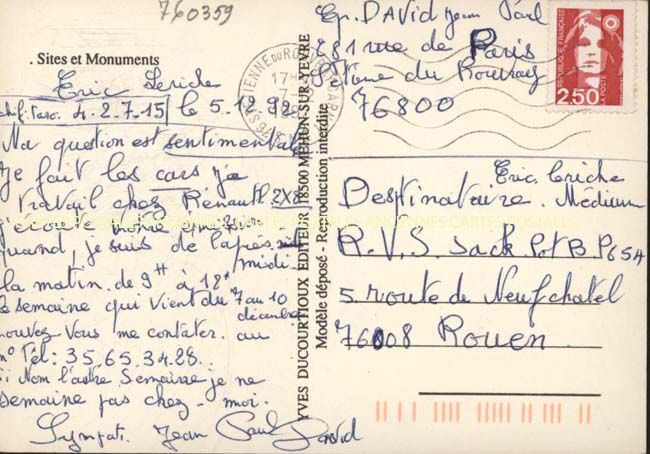 760359
. Sites et Monuments
Eric Leriche
4.2.7.15 / le 5.12.92
Ma question est sentimental
Je fait les cars je
travail chez Rénault. 2X8
j'écoute votre émission
quand, je suis de l'apres
midi
la matin. de 9H à 12H
le semaine qui vient du 7 au 10
décembre
pouvez vous me contater. au
n° Tél: 35.65.34.28.
Si Nom l'autre Semaine je ne
semaine pas chez - moi.
Sympati. Jean Paul David
YVES DUCOURTIOUX EDITEUR 18500 MEHUN-SUR-YEVRE
Modèle déposé - Reproduction interdite
Ep. DAVID Jean Paul
281 rue de Paris
St Etienne du Rouvray
76800
REPUBLIQUE FRANÇAISE
LA POSTE
2,50
Eric Leriche
Destinataire. Médium
R.V.S Jack Pot B.P654
5 route de Neufchatel
76008 Rouen